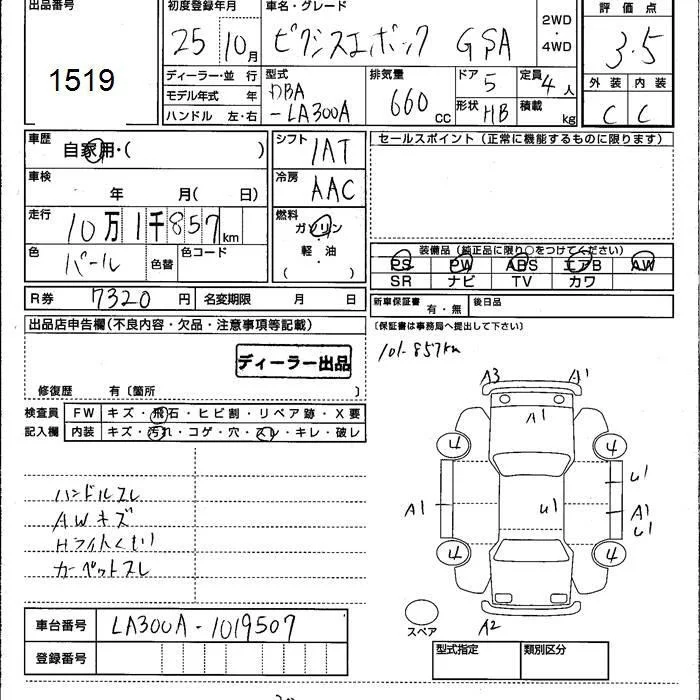 出品番号
1519
初度登録年月
25 10月
車名・グレード
ピクシスエポック GSA
2WD
・
4WD
評価点
3.5
外装 内装
C C
ディーラー・並 行
モデル年式 年
ハンドル 左・右
型式
DBA
-LA300A
排気量
660 cc
ドア 5
形状 HB
定員 4人
積載 kg
車歴
自家用・( )
車検
年 月( 日)
走行
10万1千857km
色
パール
色替
色コード
シフト
1AT
冷房
AAC
燃料
ガソリン
・
軽・油
( )
セールスポイント(正常に機能するものに限ります)
装備品(純正品に限り○をつけてください)
PS PW ABS エアB AW
SR ナビ TV カワ
R券 7320円 名変期限 月 日
新車保証書 有・無 後日品
出品店申告欄(不良内容・欠品・注意事項等記載)
(保証書は事務局へ提出して下さい)
101-857km
ディーラー出品
修復歴 有〔箇所 〕
検査員
記入欄
FW キズ・飛石・ヒビ割・リペア跡・X要
内装 キズ・汚れ・コゲ・穴・スレ・キレ・破レ
ハンドルスレ
AWキズ
Hライトくもり
カーペットスレ
A3 A1
A1
4 4
U1
A1 U1 A1
U1
4 4
スペア
A2
車台番号 LA300A-1019507
登録番号
型式指定 類別区分